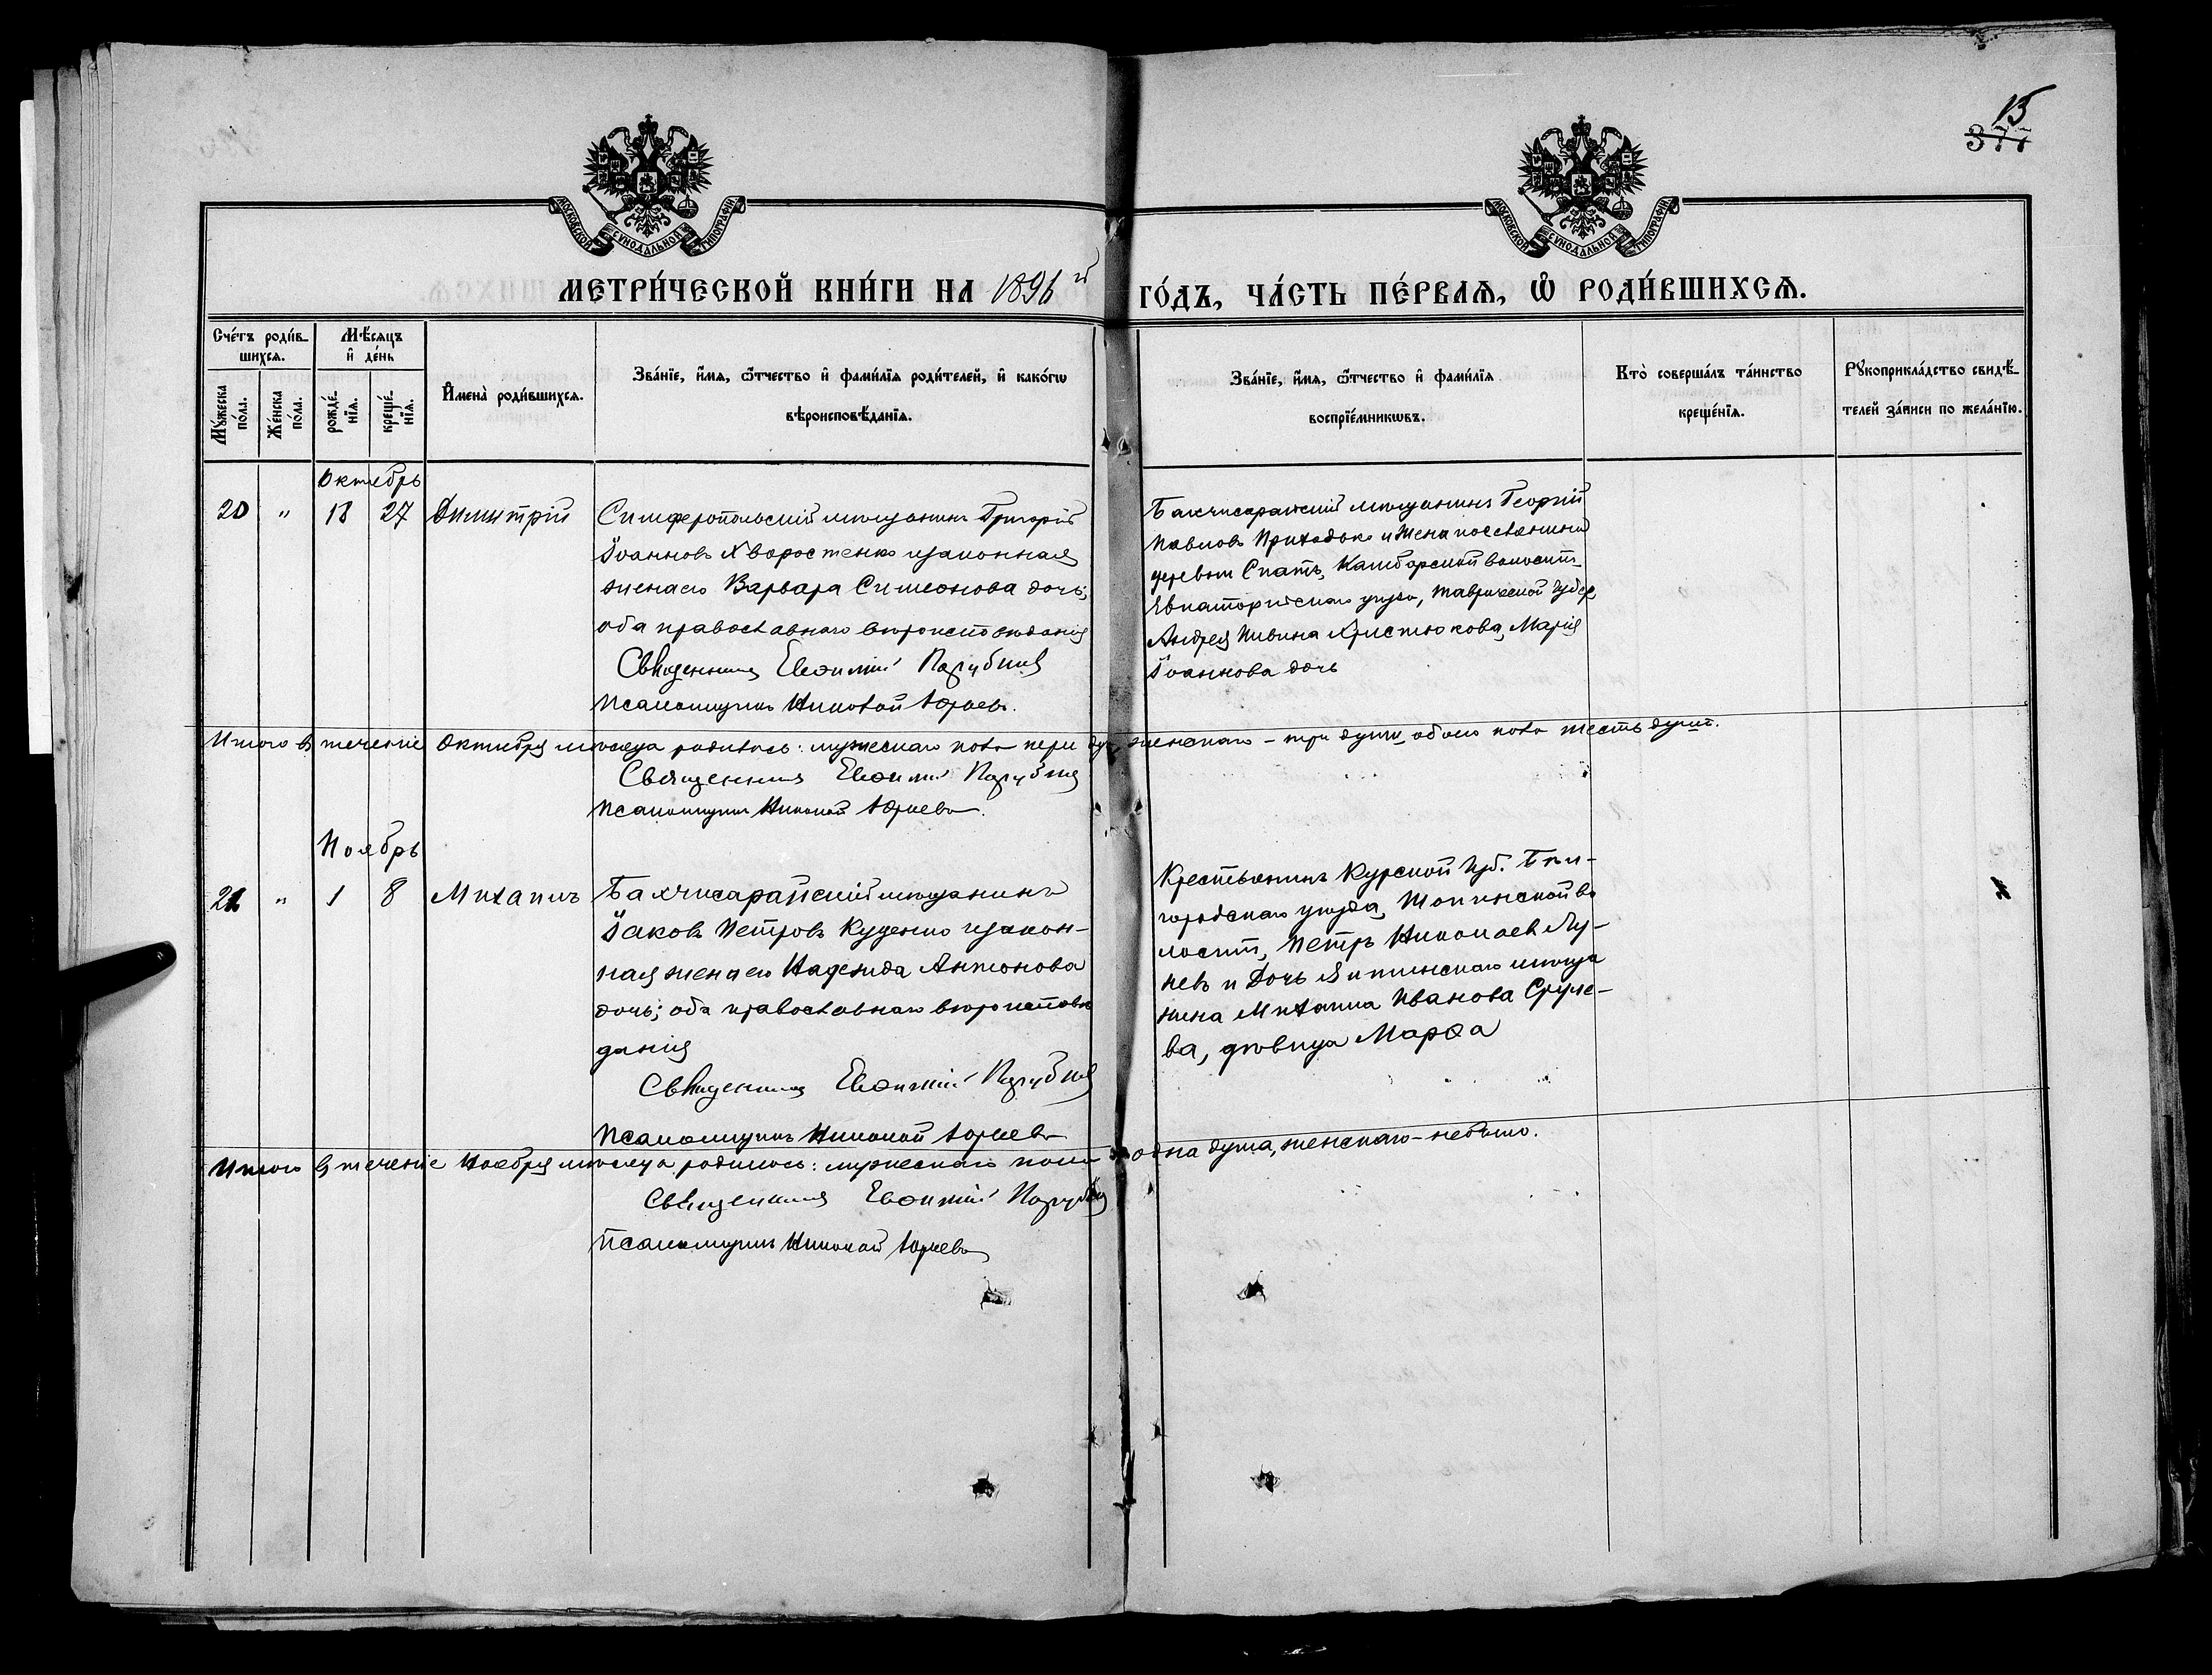 13
377
МОСКОВСКОЙ СѴНОДАЛЬНОЙ ТИПОГРАФІИ
МОСКОВСКОЙ СѴНОДАЛЬНОЙ ТИПОГРАФІИ
МЕТРИ́ЧЕСКОЙ КНИ́ГИ НА 1896 й ГО́ДЪ, ЧА́СТЬ ПЕ́РВАЯ, Ѡ҆ РОДИ́ВШИХСЯ.
Сче́тъ роди́в-
шихся.
Мꙋ́жеска по́ла.
Же́нска по́ла.
Мѣ́сяцъ
и҆ де́нь
рожде́-
нїя.
креще́-
нїя.
И҆мена̀ роди́вшихся.
Зва́нїе, и҆́мя, ѻ҆́тчество и҆ фами́лїя роди́телей, и҆ како́гѡ
вѣроисповѣ́данїя.
Зва́нїе, и҆́мя, ѻ҆́тчество и҆ фами́лїя
воспрїе́мникѡвъ.
Кто̀ соверша́лъ та́инство
креще́нїя.
Рꙋкоприкла́дство свидѣ́-
телей за́писи по жела́нїю.
Октябрь
20 " 18 27 Димитрій
Симферопольскій мѣщанинъ Григорій
Іоанновъ Хворостенко и законная
жена его Варвара Симеонова дочь;
оба православнаго вѣроисповѣданія
Священникъ Евѳимій
Псаломщикъ Николай Юрьевъ.
Бахчисарайскій мѣщанинъ Георгій
Павловъ Приходько и жена поселянина
деревни Спатъ, волости,
Евпаторійскаго уѣзда, Таврической губер.
Андрея Христюкова, Марія
Іоаннова дочь
Итого въ теченіе Октября мѣсяца родилось: мужескаго пола три душ. женскаго – три души, обоего пола шесть душъ.
Священникъ Евѳимій
Псаломщикъ Николай Юрьевъ.
Ноябрь
21 " 1 8 Михаилъ
Бахчисарайскій мѣщанинъ
Іаковъ Петровъ Куценко и закон-
ная жена его Надежда Антонова
дочь; оба православнаго вѣроисповѣ
данія
Священникъ Евѳимій
Псаломщикъ Николай Юрьевъ
Крестьянинъ Курской губ. Бѣл-
городскаго уѣзда, во
лости, Петръ Николаев Лу-
невъ и Дочь Ялтинскаго мѣща
нина Михаила Иванова
ва, дѣвица Марѳа
Итого въ теченіе Ноября мѣсяца родилось: мужескаго пола одна душа, женскаго – небыло.
Священникъ Евѳимій
Псаломщикъ Николай Юрьевъ